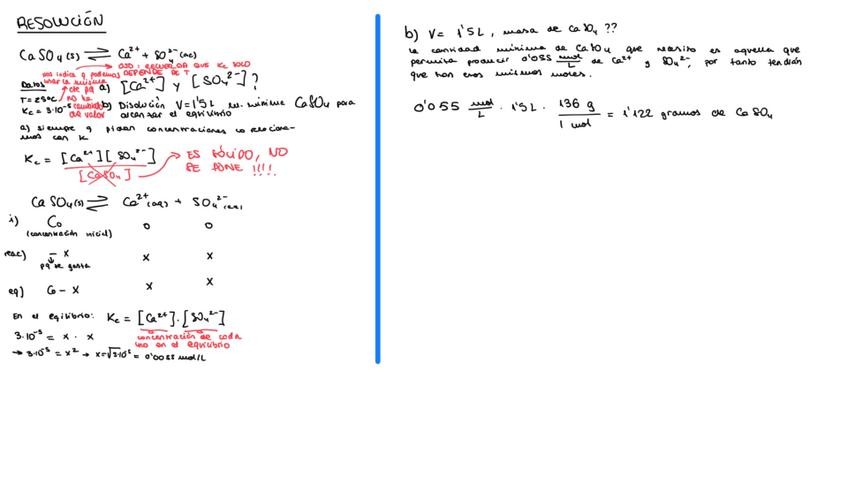 RESOLUCIÓN
CaSO4(s) ⇌ Ca²⁺ + SO4²⁻(ac)
OJO: RECUERDA QUE KC SOLO DEPENDE DE T
Datos
T = 25ºC
Kc = 3·10⁻⁵
nos indica q podemos usar la misma
no ha cambiado de valor
a) [Ca²⁺] y [SO4²⁻]?
b) Disolución V=1'5L mínima CaSO4 para alcanzar el equilibrio
a) siempre q pidan concentraciones lo relacionamos con K
Kc = [Ca²⁺][SO4²⁻] / [CaSO4]
ES SÓLIDO, NO SE PONE !!!!
CaSO4(s) ⇌ Ca²⁺(aq) + SO4²⁻(aq)
i) C0 0 0
(concentración inicial)
reac) - x x x
pq se gasta
eq) C0 - x x x
En el equilibrio: Kc = [Ca²⁺]·[SO4²⁻]
concentración de cada uno en el equilibrio
3·10⁻⁵ = x · x
→ 3·10⁻⁵ = x² → x=√3·10⁻⁵ = 0'0055 mol/L
b) V = 1'5 L, masa de CaSO4 ??
la cantidad mínima de CaSO4 que necesito es aquella que
permita producir 0'055 mol/L de Ca²⁺ y SO4²⁻, por tanto tendrán
que han esos mismos moles.
0'0055 mol/L · 1'5L · 136 g / 1 mol = 1'122 gramos de CaSO4